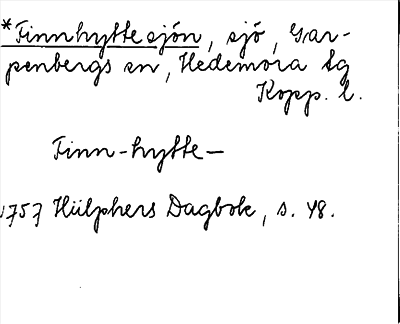 *Finnhyttesjön, sjö, Gar-
penbergs sn, Hedemora tg
Kopp. l.
Finn-hytte-
1757 Hülphers Dagbok, s. 48.